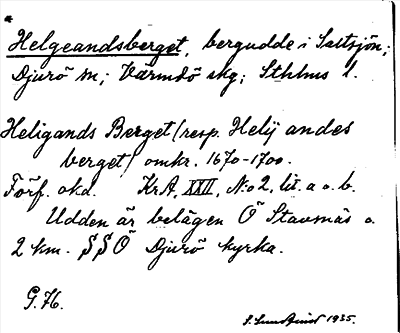 Helgeandsberget, bergudde i Saltsjön;
Djurö sn; Värmdö skg; Sthlms l.
Heligands Berget (resp. Helij andes
berget) omkr. 1670-1700.
Förf. okd. KrA, XXII, N:o 2, lit. a o. b.
Udden är belägen Ö Stavsnäs o.
2 km. SSÖ Djurö kyrka.
G. 76.
S. Sundquist 1935.